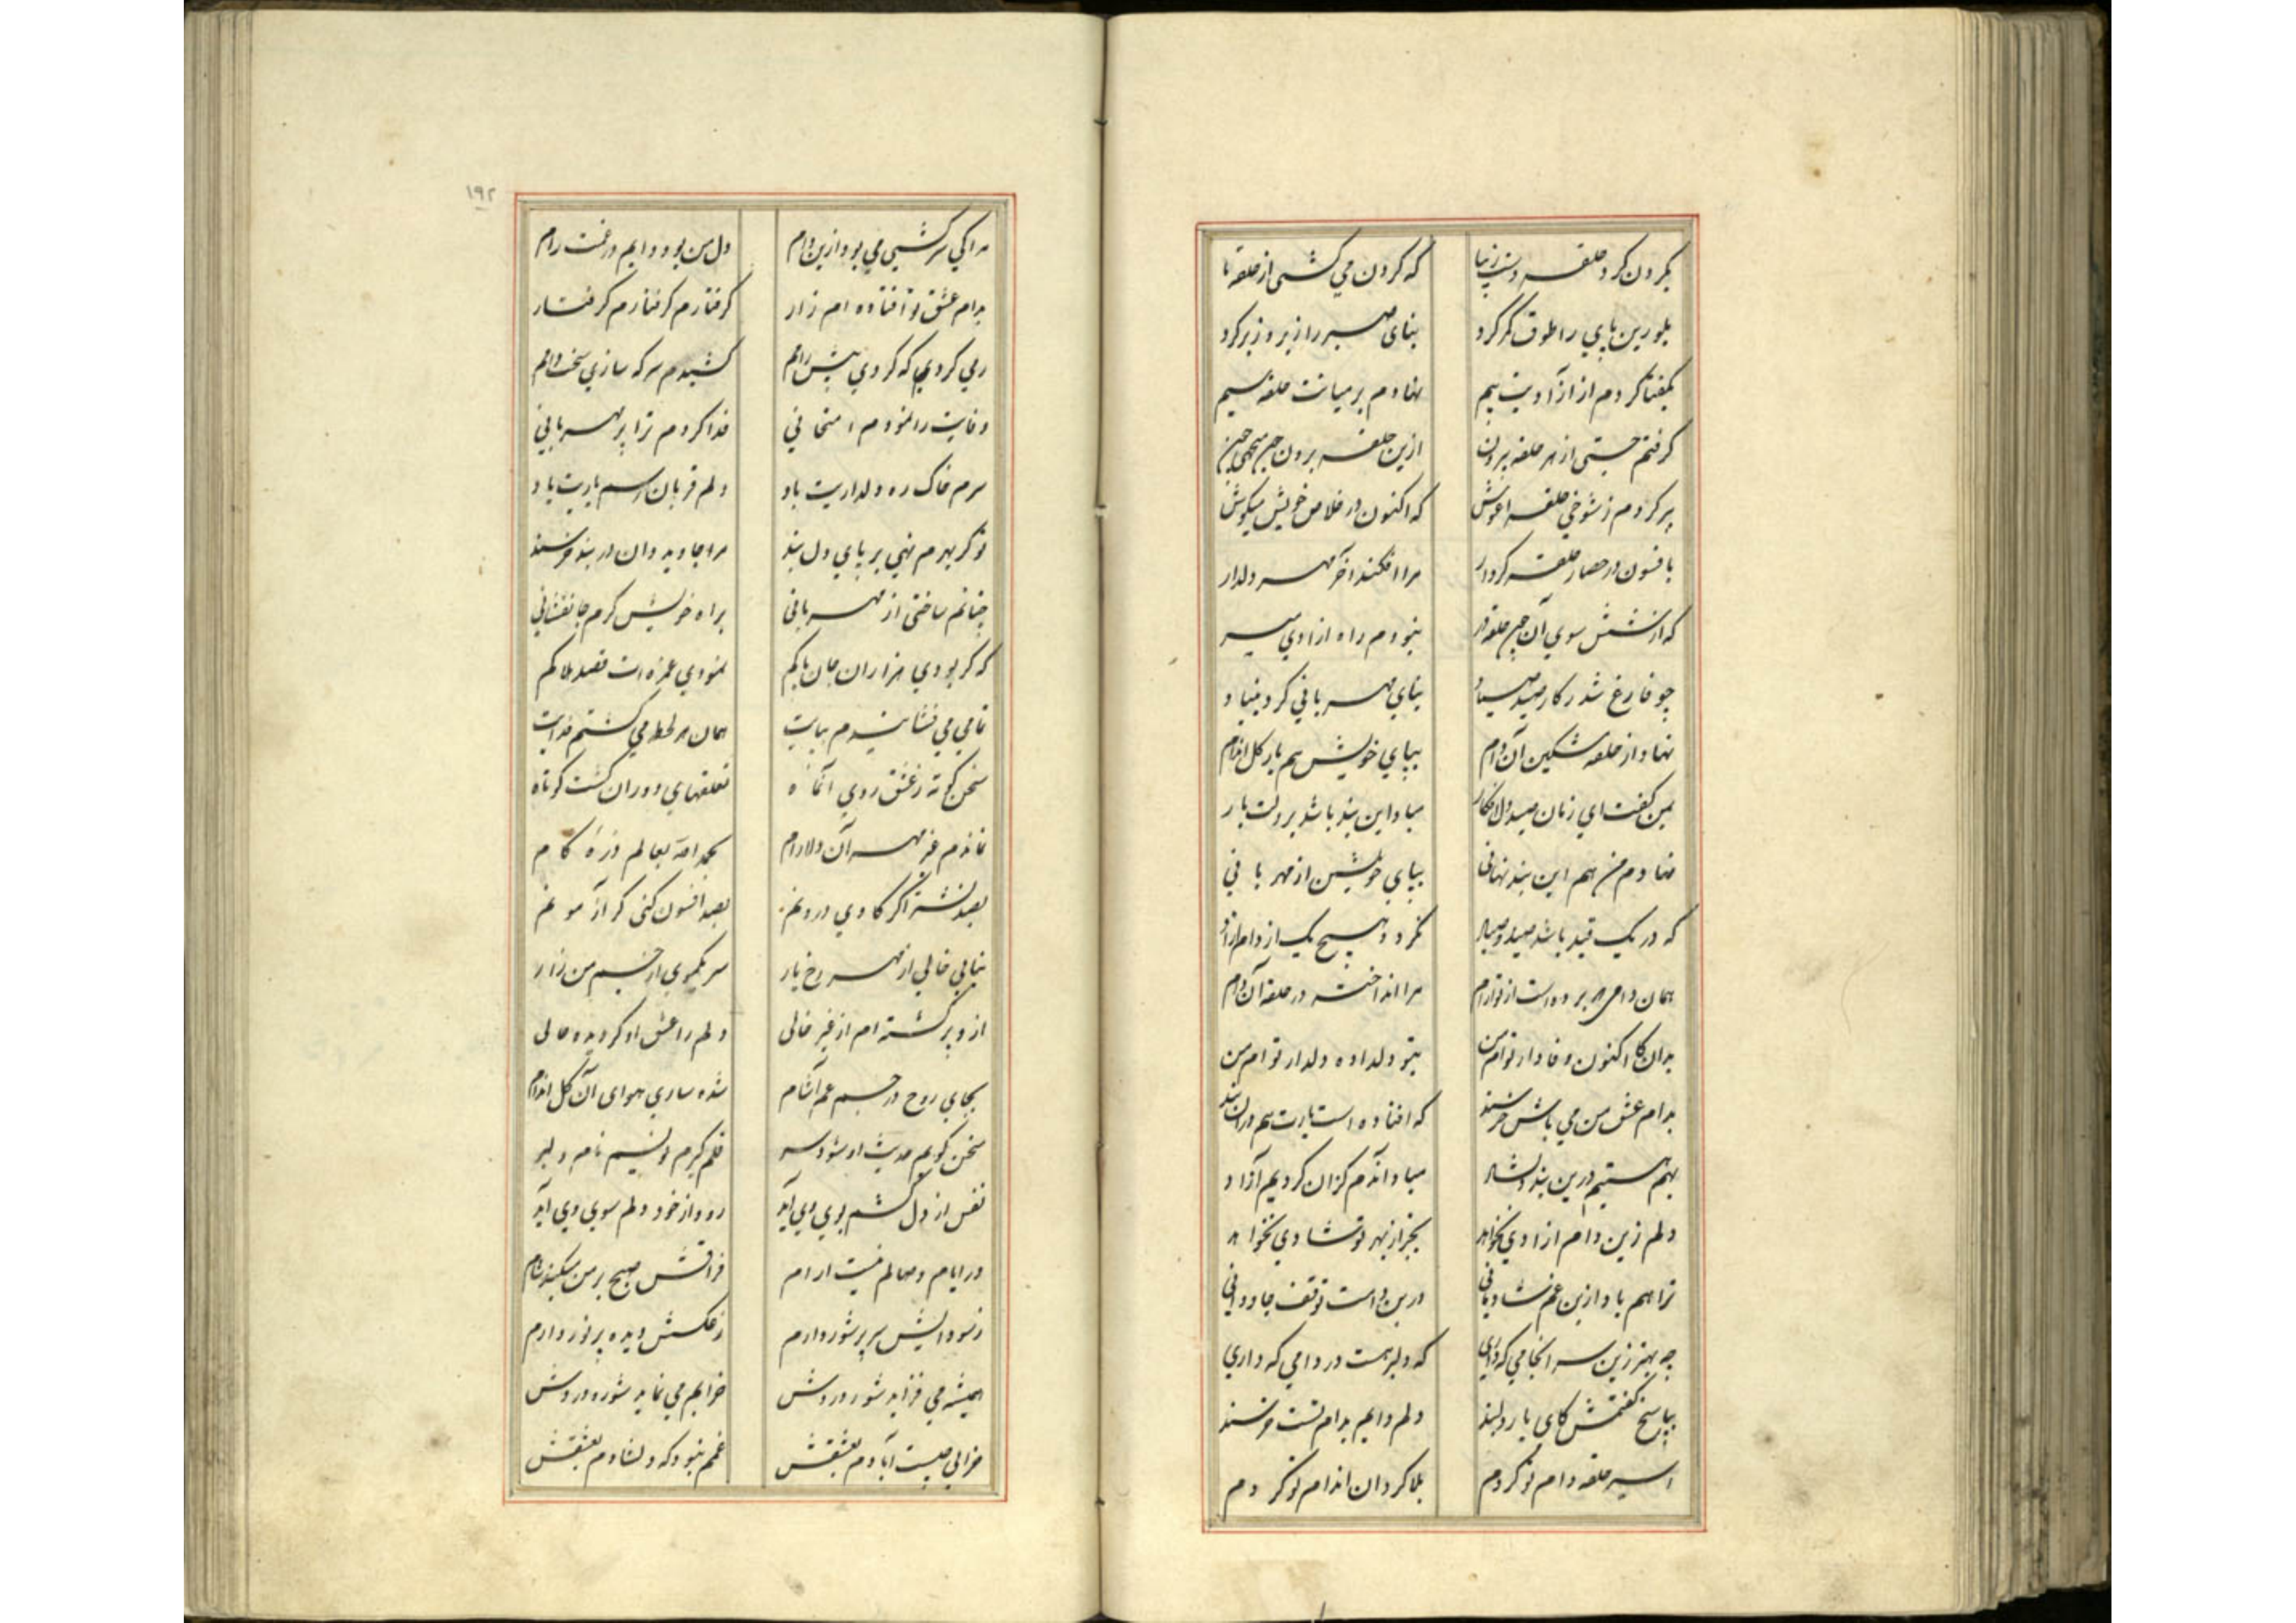 بگردن کرد حلقه دست زیبا
که گردن می کشی از حلقه ما
بلورین پای را طوق کمر کرد
بنای صبر را زیر و زبر کرد
بگفتا کردم از آزادیت بیم
نهادم بر میانت حلقه سیم
گرفتم جستی از هر حلقه بیرون
ازین حلقه برون
پر کردم ز شوخی حلقه اغوش
که اکنون در خلاص خویش میکوش
بافسون در حصار حلقه کردار
مرا افکند آخر مهر دلدار
که از شش سوی آن حلقه در
نبودم راه ازادی میسر
چو فارغ شد ز کار صید صیاد
بنای مهربانی کرد بنیاد
نهاد از حلقه مشکین آن دام
بپای خویش هم یار گل اندام
بمن گفت ای زمان صید دل افکار
مباد این بند باشد بر دلت بار
نهادم من هم این بند نهانی
بپای خویشتن از مهربانی
که در یک قید باشد صید و صیاد
نگردد هیچ یک از دام ازاد
همان دامی که برده است از تو ارام
مرا انداخته در حلقه آن دام
بدان کاکنون وفادار توام من
بتو دلداده دلدار توام من
بدام عشق من می باش خرسند
که افتاده است یارت هم دران بند
بهم هستیم درین بند دلشاد
مباد آندم کزان گردیم آزاد
دلم زین دام ازادی نخواهد
بجز از بهر تو شادی نخواهد
ترا هم باد ازین غم شادمانی
درین دامت توقف جاودانی
چه بهتر زین سرانجامی که داری
که دلبر هست در دامی که داری
بپاسخ گفتمش کای یار دلبند
دلم دایم بدام تست خرسند
اسیر حلقه دام تو گردم
بلاگردان اندام تو گردم
۱۹۲
مرا کی سرکشی می بود ازین دام
دل من بود دایم در غمت رام
بدام عشق تو افتاده ام زار
گرفتارم گرفتارم گرفتار
رمی کردم که کردی پیش رامم
کشیدم سر که سازی سخت دامم
وفایت را نمودم امتحانی
فدا کردم ترا بر مهربانی
سرم خاک ره دلداریت باد
دلم قربان رسم یاریت باد
تو گر بهرم نهی بر پای دل بند
مرا جاوید دان در بند خرسند
چنانم ساختی از مهربانی
براه خویش گرم جانفشانی
که گر بودی هزاران جان پاکم
نمودی غمزه ات قصد هلاکم
تمامی می فشاندم بپایت
همان هر لحظه می گشتم فدایت
سخن کوته ز عشق روی آنماه
تعلقهای دوران گشت کوتاه
نماندم غیر مهر آن دلارام
بحمدالله بعالم ذره کام
بصد نشتر اگر کاوی درونم
بصد افسون کنی گر آزمونم
نیابی خالی از مهر رخ یار
سر یکموی از جسم من زار
ازو پر گشته ام از غیر خالی
دلم را عشق او گردیده حالی
بجای روح در جسم غم آشام
شده ساری هوای آن گل اندام
سخن گویم حدیث او شود سر
قلم گیرم نویسم نام دلبر
نفس از دل کشم بوی وی آید
رود از خود دلم سوی وی آید
در ایام وصالم نیست ارام
فراقش صبح بر من میکند شام
ز سودایش سر پر شور دارم
ز عکسش دیده پر نور دارم
همیشه می فزاید شور دردش
خرابم می نماید شوره دردش
خرابی چیست آبادم بعشقش
غمم نبود که دلشادم بعشقش